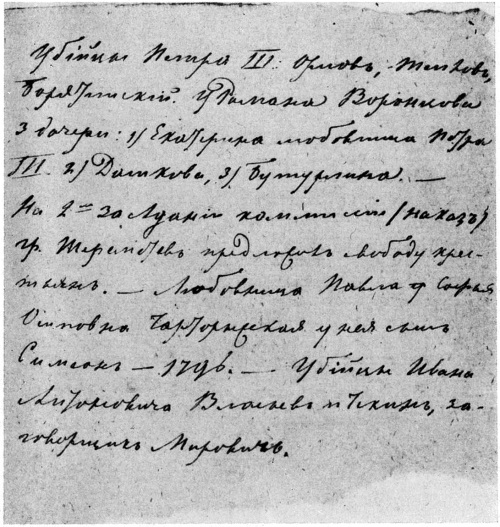 Убійцы Петра III: Орловъ, Тепловъ,
Борятинскій. У Романа Воронцова
3 дочери: 1) Екатерина любовница Петра
III. 2) Дашкова, 3) Бутурлина. —
На 2омъ засѣданіи коммиссіи (наказъ)
гр. Шереметевъ предложилъ свободу крес-
тьянъ. — Любовница Павла Софья
Осиповна Чарторижская у нея сынъ
Симеонъ — 1796. — Убійцы Ивана
Антоновича Власьевъ и Чекинъ, за-
говорщикъ Мировичъ.